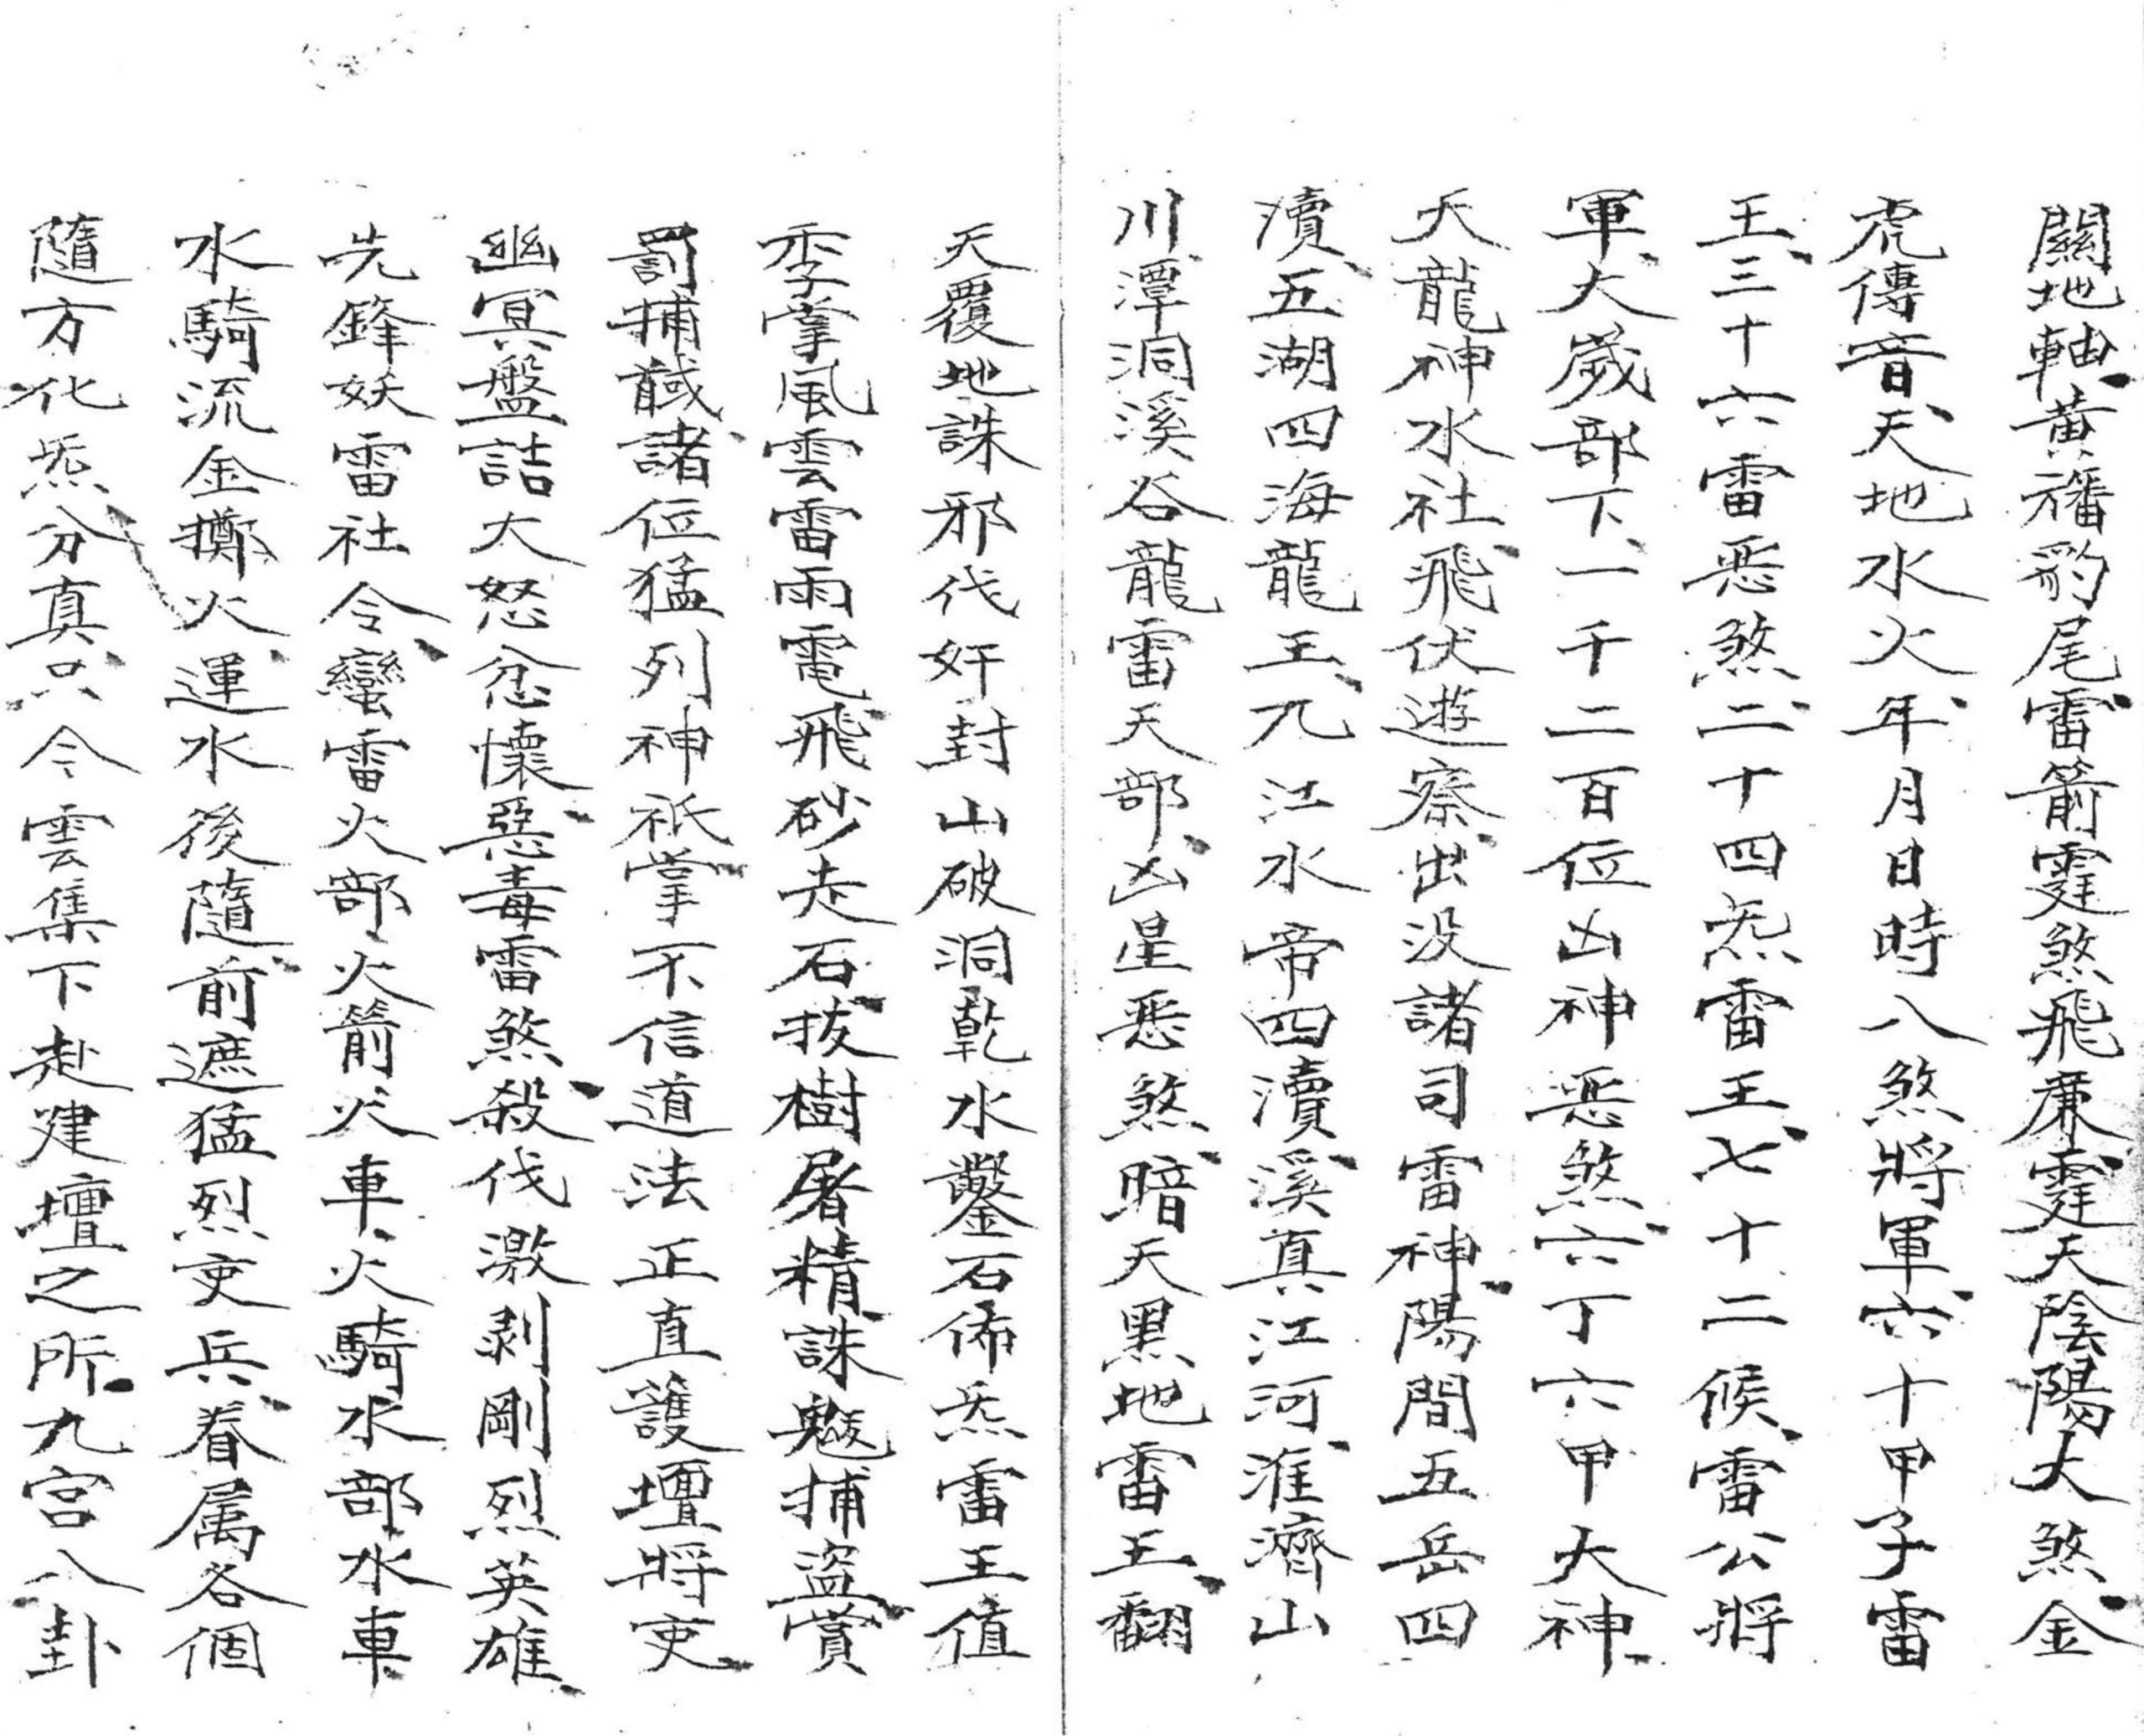 關地軸黃旛豹尾雷箭霆煞飛廉霆天陰陽大煞金
虎傳音天地水火年月日時八煞將軍六十甲子雷
王三十六雷惡煞二十四炁雷王七十二候雷公將
軍大歲部下一千二百位凶神惡煞六丁六甲大神
天龍神水社飛伏遊察出没諸司雷神陽間五岳四
瀆五湖四海龍王兀江水帝四瀆溪真江河淮濟山
川潭洞溪谷龍雷天部凶星惡煞暗天黑地雷王翻
天覆地誅邪伐奸封山破洞乾水鑿石佈炁雷王值
季掌風雲雷雨電飛砂走石拔樹屠精誅魃捕盜賞
罰捕馘諸位猛列神祇掌不信道法正直護壇將吏
幽冥盤詰大怒忿懷惡毒雷煞殺伐激剥剛烈英雄
先鋒妖雷社令蠻雷火部火箭火車火騎水部水車
水騎流金擲火運水後隨前遮猛烈吏兵眷属各個
隨方化炁分真只今雲集下赴建壇之所九宮八卦